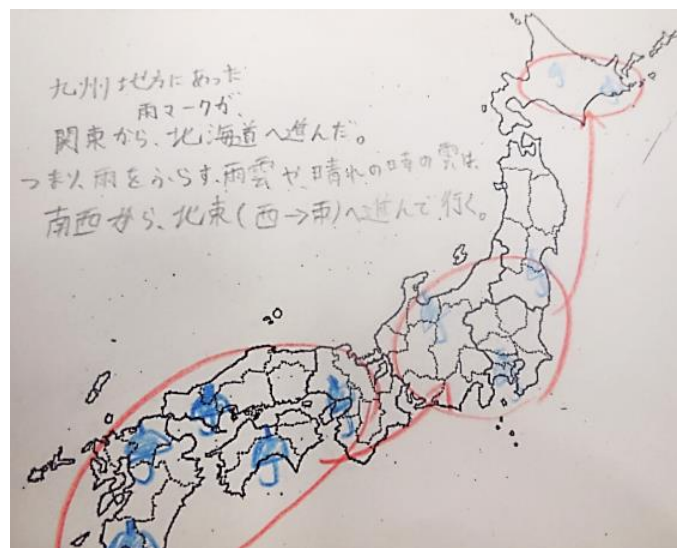 九州地方にあった
雨マークが、
関東から、北海道へ進んだ。
つまり、雨をふらす、雨雲や、晴れの時の雲は、
南西から、北東(西→東)へ進んで行く。